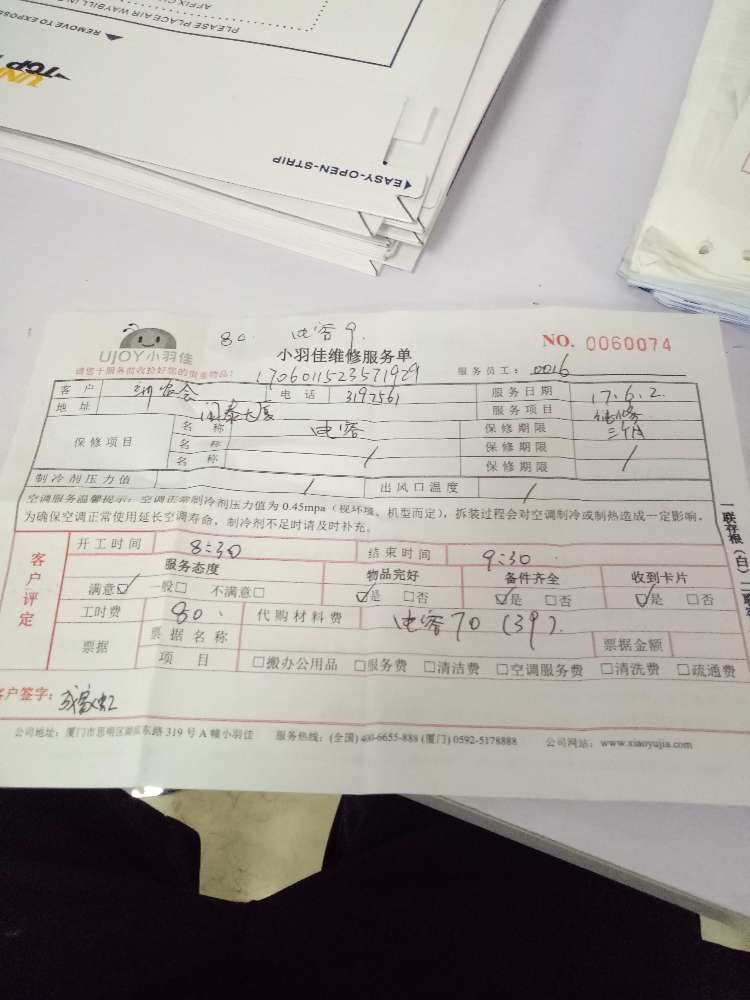 AFFIX
PLEASE PLACE AIR WAYBILL IN
REMOVE TO EXPOSE
TOP
EASY-OPEN-STRIP
80. 电容9.
UJOY小羽佳
小羽佳维修服务单
NO. 0060074
请您于服务前收捡好您的贵重物品!
1706011523571929
服务员工: 0016
客户 电话 3192561 服务日期 17.6.2.
地址 闽泰大厦 服务项目 维修
保修项目 名称 电容 保修期限 三个月
名称 / 保修期限 /
名称 保修期限
制冷剂压力值 / 出风口温度 /
空调服务温馨提示: 空调正常制冷剂压力值为 0.45mpa (视环境、机型而定), 拆装过程会对空调制冷或制热造成一定影响,
为确保空调正常使用延长空调寿命, 制冷剂不足时请及时补充。
一联存根(白)二联
客户评定
开工时间 8:30 结束时间 9:30
服务态度 物品完好 备件齐全 收到卡片
满意☑ 一般□ 不满意□ ☑是 □否 ☑是 □否 ☑是 □否
工时费 80、 代购材料费 电容70 (39).
票据 票据名称 票据金额
项目 □搬办公用品 □服务费 □清洁费 □空调服务费 □清洗费 □疏通费
客户签字:
公司地址: 厦门市思明区湖滨东路 319 号 A 幢小羽佳 服务热线: (全国) 400-6655-888 (厦门) 0592-5178888 公司网站: www.xiaoyujia.com